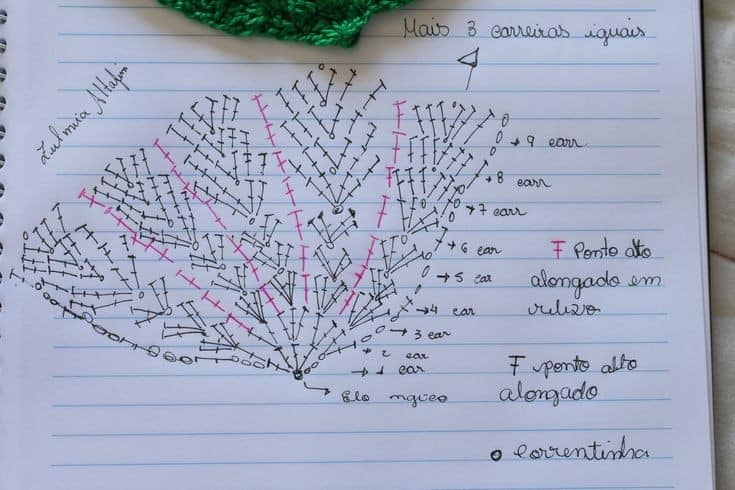 Mais 3 carreiras iguais
Zulmira Altafin
9 carr
8 carr
7 carr
6 car
5 car
4 car
3 car
2 car
1 car
Elo mgico
Ŧ Ponto alto
alongado em
relevo
Ŧ ponto alto
alongado
o correntinha